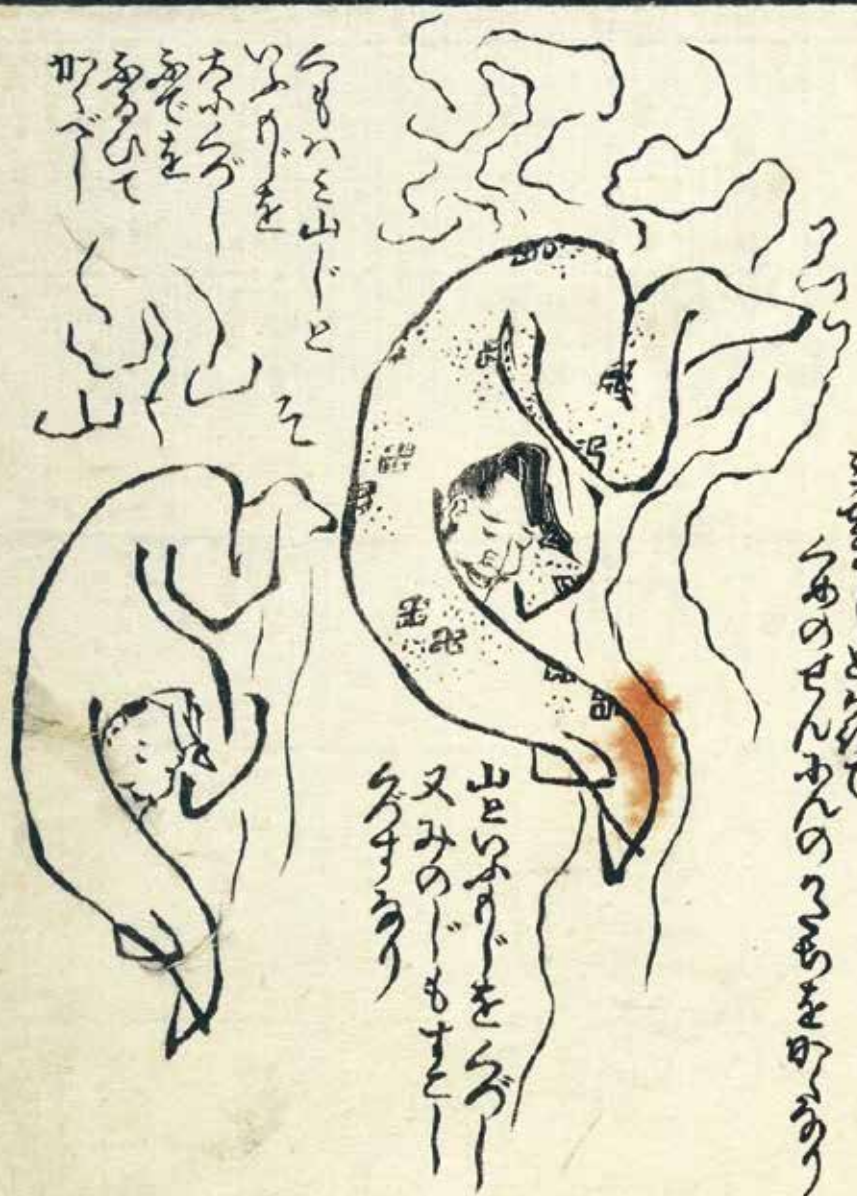 くめのせんにんのかたちをかくなり
山といふもじをくづし
又みのじもすこし
くづすなり
くもハミ山じと
いふもじを
大にくづし
ふでを
ふるひて
かくべし
山
山
そ